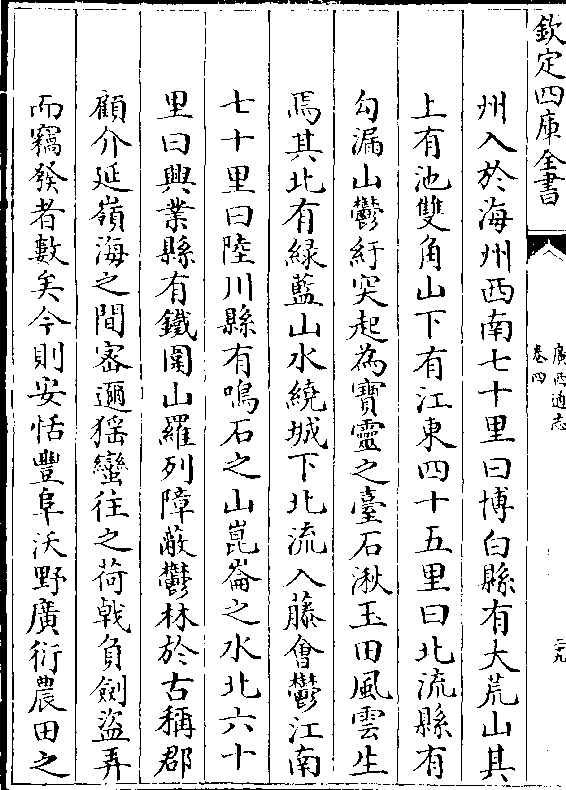 欽定四庫全書
廣西通志
卷四
二九
州入於海州西南七十里曰博白縣有大荒山其
上有池雙角山下有江東四十五里曰北流縣有
勾漏山鬱紆突起為寶靈之臺石湫玉田風雲生
焉其北有綠藍山水繞城下北流入藤會鬱江南
七十里曰陸川縣有鳴石之山崑崙之水北六十
里曰興業縣有鐵圍山羅列障蔽鬱林於古稱郡
顧介延嶺海之間密邇猺蠻往之荷戟負劍盜弄
而竊發者數矣今則安恬豐阜沃野廣衍農田之